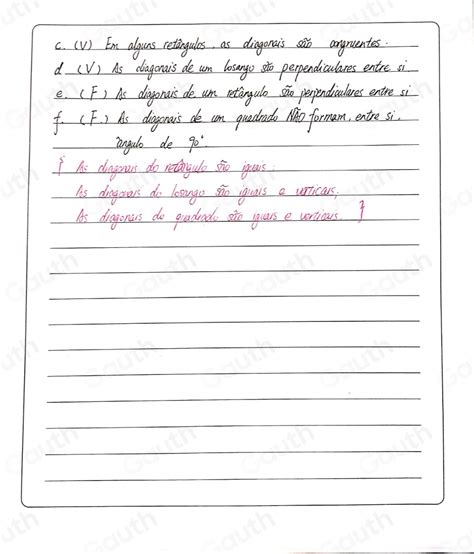 c. (V) Em alguns retângulos, as diagonais são congruentes.
d (V) As diagonais de um losango são perpendiculares entre si
e (F) As diagonais de um retângulo são perpendiculares entre si
f. (F.) As diagonais de um quadrado NÃO formam, entre si,
ângulo de 90°.
{ As diagonais do retângulo são iguais:
As diagonais do losango são iguais e verticais;
As diagonais do quadrado são iguais e verticais. }
Gauth